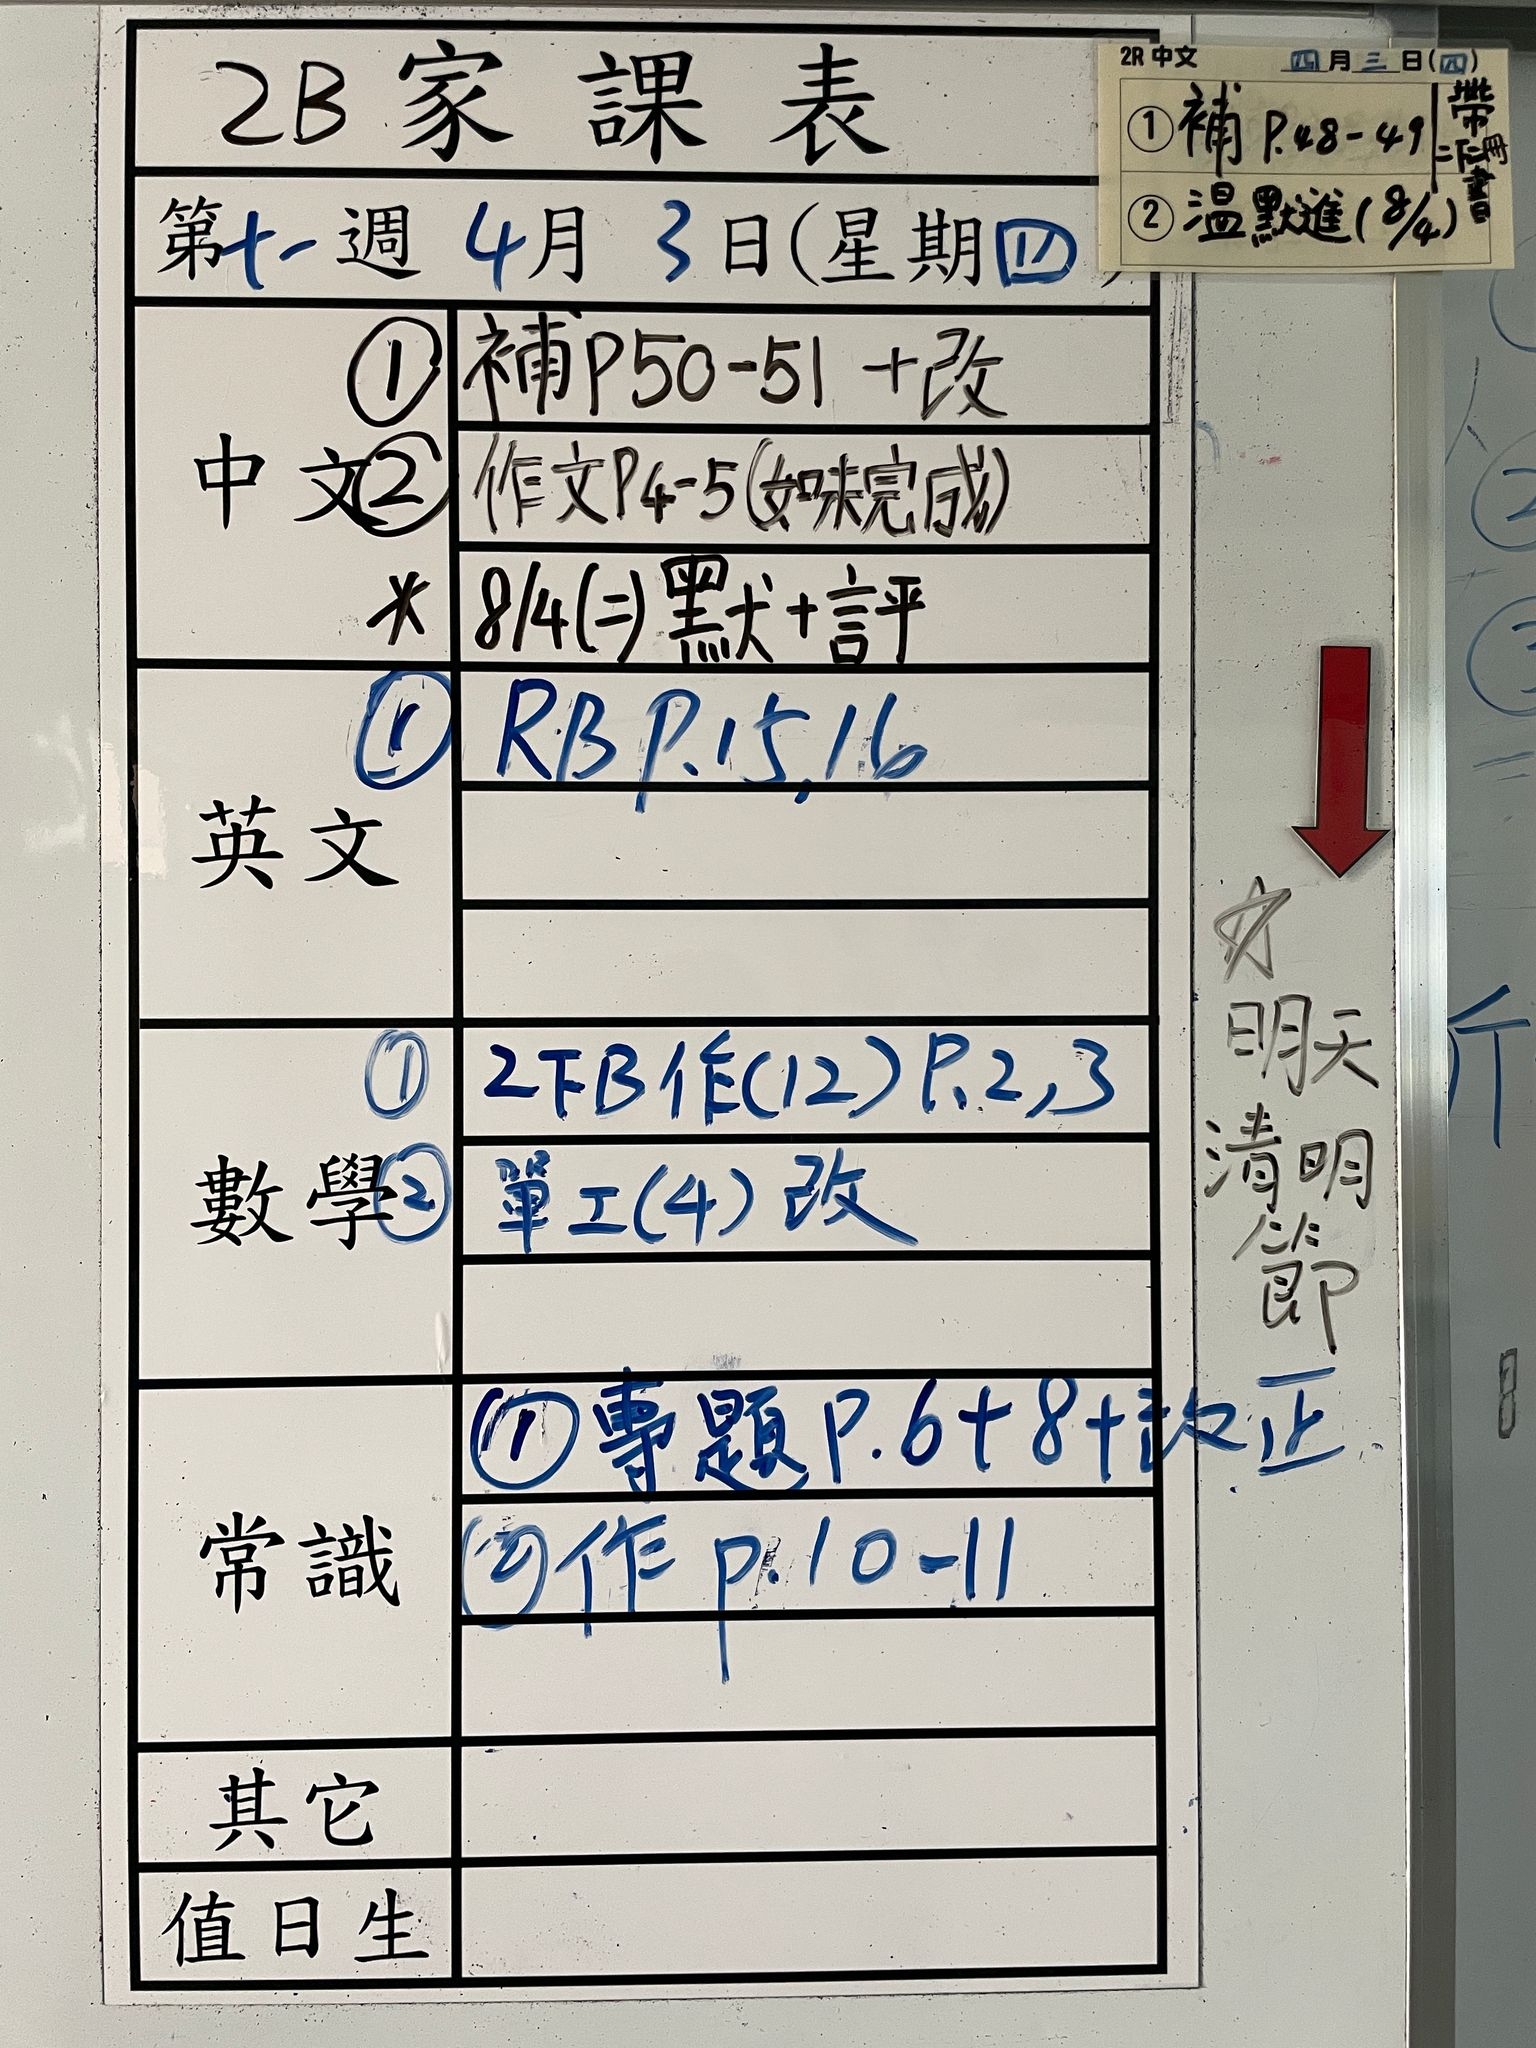 2B 家課表
第十一週 4月 3日(星期四)
中文
① 補P50-51 +改
② 作文P4-5(如未完成)
* 8/4(二)默+評
英文
① RB P.15,16
數學
① 2下B作(12) P.2,3
② 單工(4) 改
常識
① 專題 P.6+8+改正
② 作 p.10-11
其它
值日生
2R 中文 四月三日(四)
① 補 P.48-49
② 溫默進(8/4)
明天
清明
節